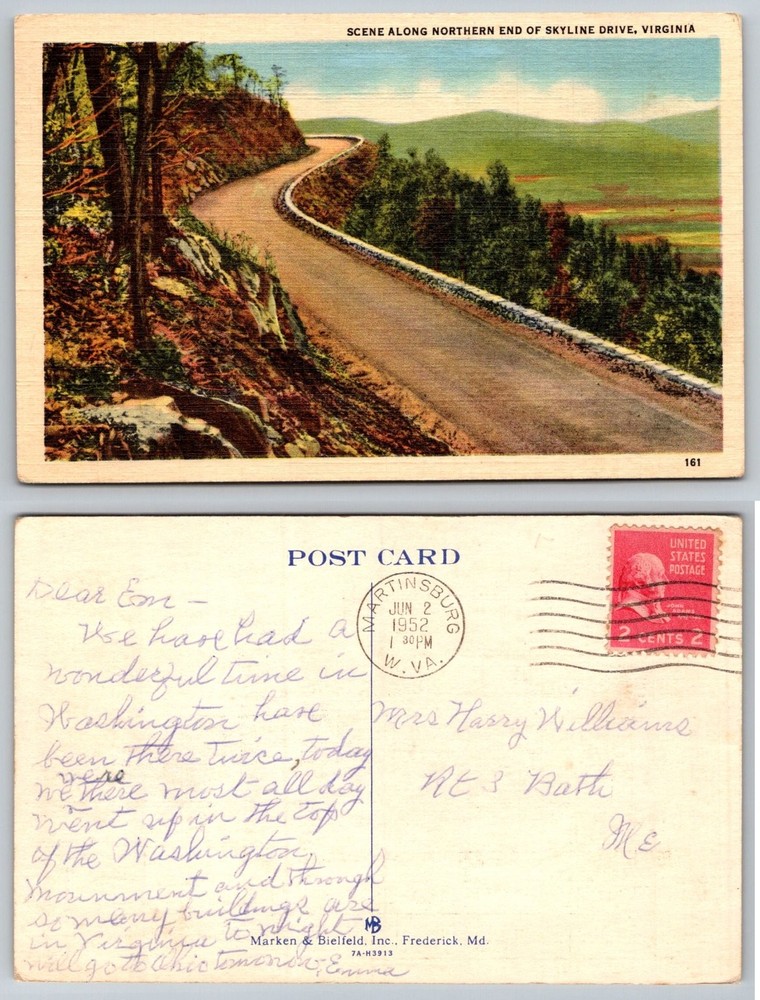 SCENE ALONG NORTHERN END OF SKYLINE DRIVE, VIRGINIA
161
POST CARD
MARTINSBURG
JUN 2
1952
1 30PM
W. VA.
UNITED
STATES
POSTAGE
JOHN ADAMS
2 CENTS 2
Dear Em -
We have had a
wonderful time in
Washington have
been there twice, today
we were there most all day
went up in the top
of the Washington
Mounment and through
so many buildings are
in Virginia to night
will go to Ohio tomorrow, Emma
Mrs Harry Williams
Rt 3 Bath
Me
MB
Marken & Bielfeld, Inc., Frederick, Md.
7A-H3913